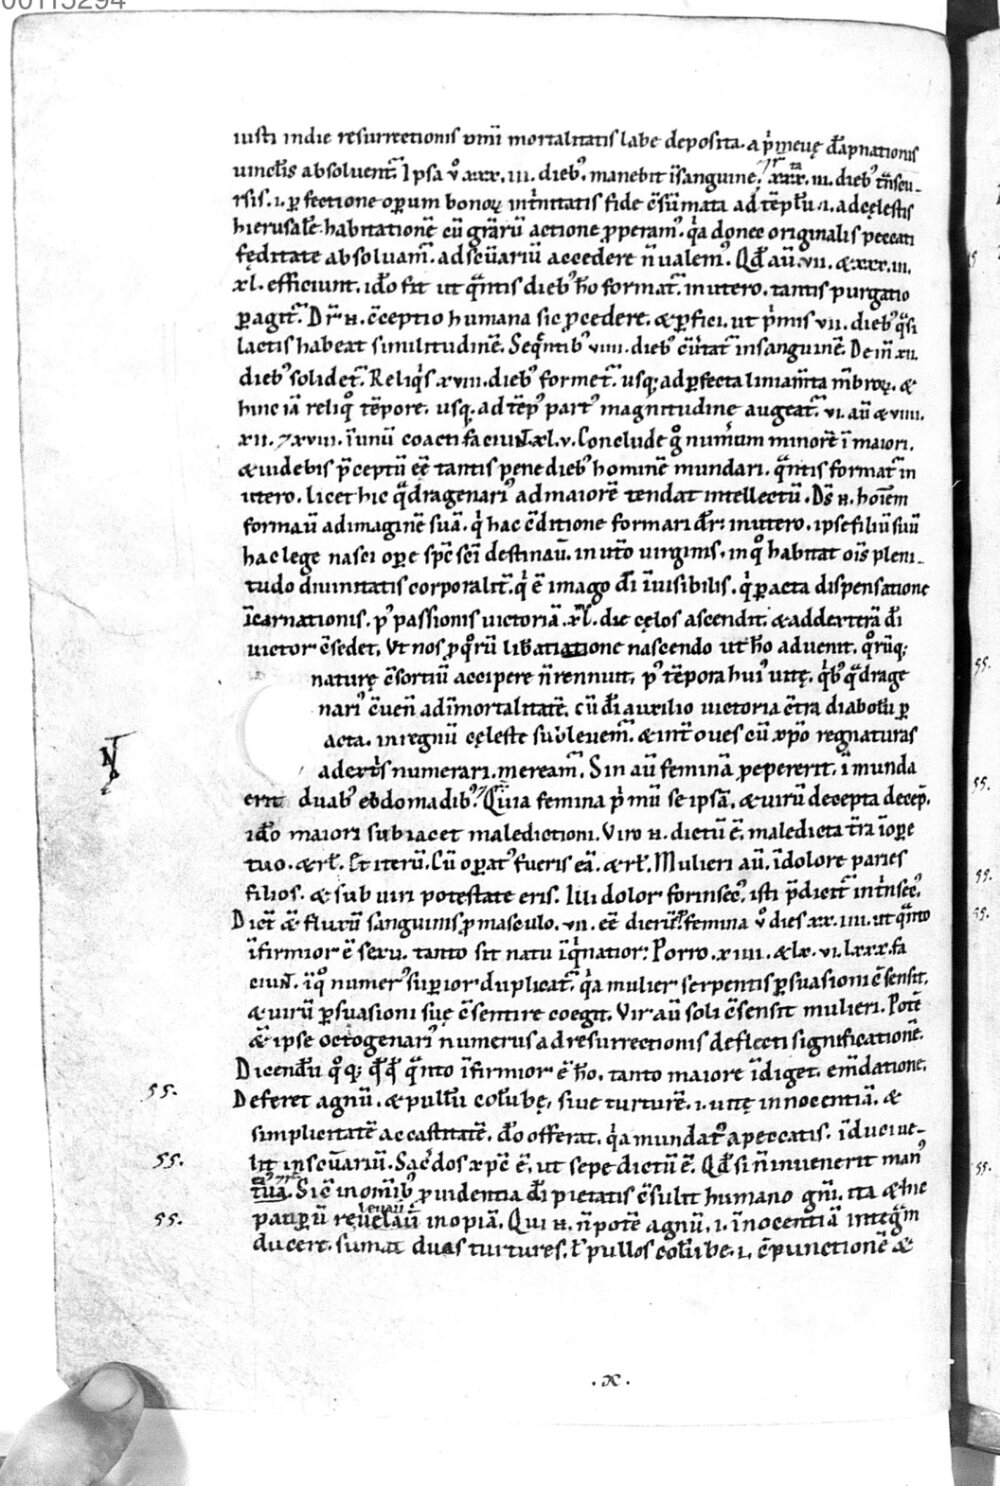 00115294
iusti indie resurrectionis omi mortalitatis labe deposita. a p̾meuę dāpnationis
uinclis absoluent᷑. Ipsa ů xxx. iii. dieb᷒. manebit ī sanguine. xxx. iii. dieb᷒ t̄nscu-
rsis. i. ꝑfectione oꝑum bonoꝝ intͥnitatis fide c̄sūmata ad tēplū .i. adcęlestis
hierusalē habitationē cū gr̄arū actione ꝓperam᷒. qͥa donec originalis peccati
fęditate absoluam᷑. adscūariū accedere n̄ ualem᷒. Qd̄ aū. vii. & xxx. iii.
xl. efficiunt. id̄o fit ut qͣntis dieb᷒ h̄o format᷑ inutero. tantis purgatio
ꝑagit᷑. Dr̄ n̄. c̄ceptio humana sic ꝓcedere. & ꝑfici. ut pͥmis vii. dieb᷒ qͣsi
lactis habeat similitudinē. Seqn̄tib᷒ viiii. dieb᷒ c̄ůtat᷑ insanguinē. Dein̄ xii.
dieb᷒ solidet᷑. Reliqͥs. xviii. dieb᷒ formet᷑. usq; ad ꝑfecta liniam̄ta m̄broꝝ. &
hinc iā reliqͦ tēpore. usq; ad tēp᷒ part᷒ magnitudine augeat᷑. vi. aū & viiii.
xii. ⁊ xviii. ī unū coacti faciun̄t xl. v. Conclude gͦ num̄um minorē ī maiori.
& uidebis p̄ceptū eē tantis pene dieb᷒ hominē mundari. qͣntis format᷑ in
utero. licet hic qͣdragenari᷒ admaiorē tendat intellectū. Ds̄ n̄. hoīem
formaū adimaginē suā. qͥ hac c̄ditione formari dr̄ inutero. ipse filiū suū
hac lege nasci oꝑe spc̄ sc̄i destinaū. in ut̄o uirginis. in qͦ habitat oīs pleni-
tudo diuinitatis corporalit᷑. qͥ ē imago dī īuisibilis. qͥ ꝑacta dispensatione
īcarnationis. p᷒ passionis uictoriā. xl. die cęlos ascendit. & addexterā dī
uictor c̄sedet. Ut nos ꝓ qͦrū lib̄atione nascendo ut h̄o aduenit. qͦrūq;
naturę c̄sortiū accipere n̄ rennuit. p᷒ tēpora hui᷒ uitę. qͥb᷒ qͣdrage
nari᷒ c̄uen̄ adīmortalitatē. cū dī auxilio uictoria c̄tra diabolū ꝑ
acta. inregnū cęleste subleuem᷑. & int̄ oues cū xp̄o regnaturas
adext̄s numerari meream᷑. Sin aū feminā pepererit. īmunda
erit duab᷒ ebdomadib᷒. Quia femina pͥmū se ipsā. & uirū decepta decep̄.
id̄o maiori subiacet maledictioni. Viro n̄. dictū ē. maledicta t̄ra ī oꝑe
tuo. & rl̄. Et iterū. Cū oꝑat᷒ fueris eā. & rl̄. Mulieri aū. īdolore paries
filios. & sub uiri potestate eris. Illi dolor forinsec᷒. isti p̄dicit᷑ intͥnsec᷒.
Dict̄ ē fluxū sanguinis ꝓ masculo. vii. eē dierū. femina ů dies xx. iiii. ut qͣnto
īfirmior ē sexu. tanto sit natu īqͥnatior: Porro. xiiii. & lx. vi. lxxx. fa
ciun̄t. ī qͦ numer᷒ suꝑior duplicat᷑. qͥa mulier serpentis ꝑsuasioni c̄sensit.
& uirū ꝑsuasioni suę c̄sentire coegit. Vir aū soli c̄sensit mulieri. Potē
& ipse octogenari᷒ numerus adresurrectionis deflecti significationē.
Dicendū qͦq; qd̄ qͣnto īfirmior ē h̄o. tanto maiore īdiget. em̄datione.
55. Deferet agnū. & pullū colūbę, siue turturē. i. uitę innocentiā. &
simplicitatē ac castitatē. d̄o offerat. qͥa mundat᷒ apeccatis. īduciue-
55. lit inscūariū. Sac̄dos xpc̄ ē. ut sepe dictū ē. Qd̄ si n̄ inuenerit man᷒
tua. Sic̄ in om̄ib᷒ ꝓuidentia dī pietatis c̄sulit humano gn̄i. ita & hic
55. pauꝑū releuaū inopiā. Qui n̄. n̄ potē agnū. i. īnocentiā integͣm
ducere. sumat duas turtures. ł pullos colūbe. i. c̄punctionē &
.x.